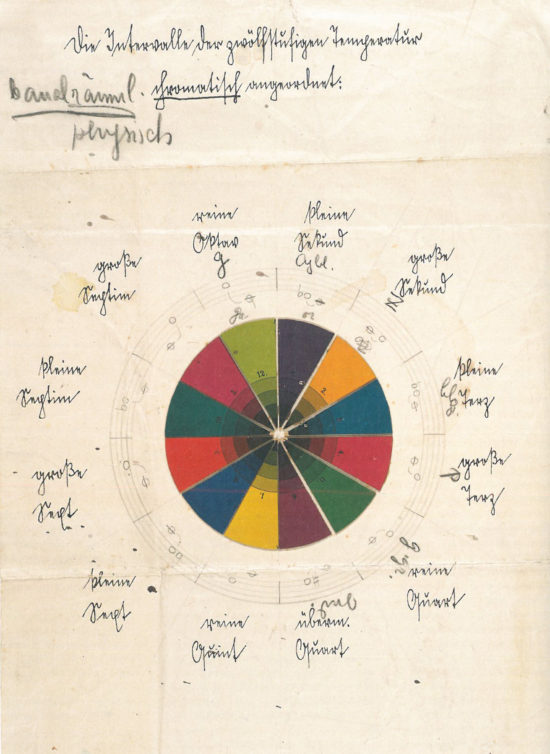 Die Intervalle der zwölfstufigen Temperatur
chromatisch angeordnet:
physisch
reine
Oktav
kleine
Sekund
große
Sekund
kleine
Terz
große
Terz
reine
Quart
überm.
Quart
reine
Quint
kleine
Sext
große
Sext
kleine
Septim
große
Septim
12.
2.
7.